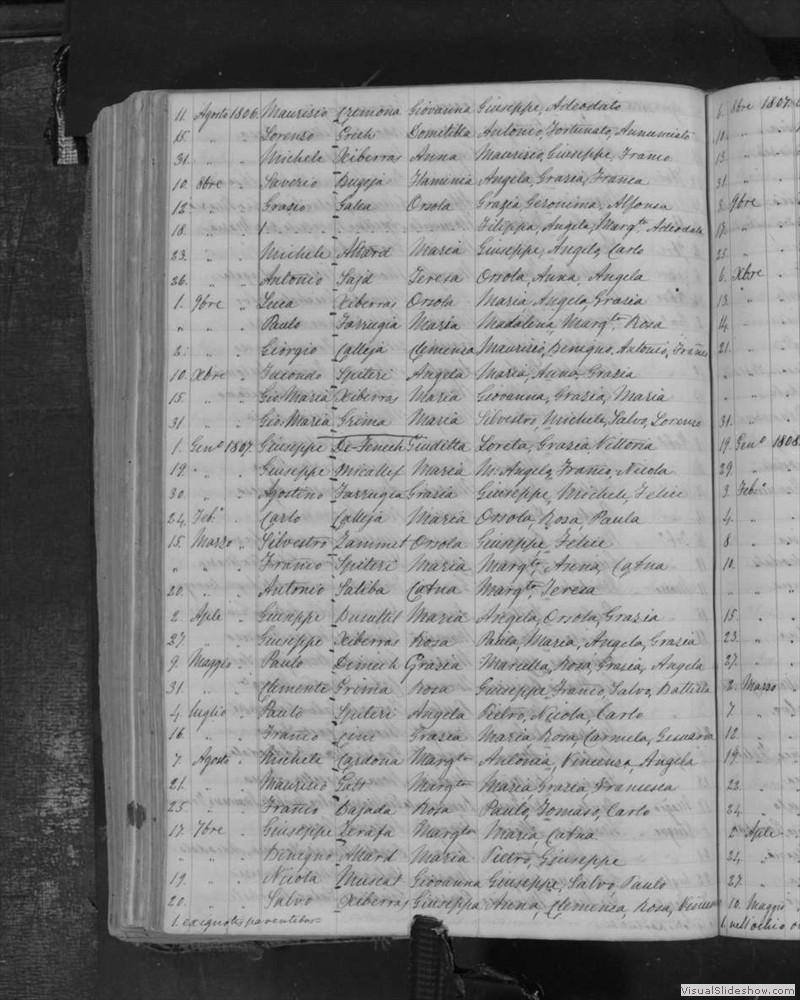 11. Agosto 1806. Maurizio Cremona Giovanna Giuseppe, Adeodato
15. " " Lorenso Domitilla Antonio, Fortunato, Annunciato
31. " " Michele Xiberras Anna Maurizio, Giuseppe, Franco
10. 8bre " Saverio Bugeja Flaminia Angela, Grazia, Franca
12 " " Grazio Galea Orsola Grazia Geronima, Alfonsa
18. " " 1. Filippa, Angela, Margta Adeodata
23. " " Michele Attard Maria Giuseppe, Angelo, Carlo
26. " " Antonio Sajd Teresa Orsola, Anna, Angela
1. 9bre " Luca Xiberras Orsola Maria Angela, Grazia
" " " Paulo Farrugia Maria Madalena, Margta Rosa
2. " " Giorgio Calleja Clemenza Maurizio, Benigno, Antonio, Franco
10. Xbre " Jucondo Spiteri Angela Maria, Anna, Grazia
15 " " Gio. Maria Xiberras Maria Giovanna, Grazia, Maria
31 " " Gio. Maria Grima Maria Silvestro, Michele, Salvo, Lorenzo
1. Geno 1807. Giuseppe De Fenech Giuditta Loreta, Grazia Vittoria
19. " " Giuseppe Micallef Maria M. Angelo, Franco, Nicola
30. " " Agostino Farrugia Grazia Giuseppe, Michele, Felice
24. Febo " Carlo Calleja Maria Orsola, Rosa, Paula
15. Marzo " Silvestro Zammit Orsola Giuseppe, Felice
" " " Franco Spiteri Maria Margta, Anna, Catna
20. " " Antonio Saliba Catna Margta, Teresa
2. Aple " Giuseppe Busuttil Maria Angela, Orsola, Grazia
27 " " Giuseppe Xiberras Rosa Paula, Maria, Angela, Grazia
9. Maggio " Paulo Dimech Grazia Marietta, Rosa, Grazia, Angela
31 " " Clemente Grima Rosa Giuseppe, Franco, Salvo, Battista
4 luglio " Paulo Spiteri Angela Pietro, Nicola, Carlo
16 " " Franco Cini Grazia Maria Rosa, Carmela, Gesuarda
7. Agosto " Michele Cardona Margta Antonia, Vincenza, Angela
21. " " Maurizio Galt Margta Maria Grazia, Francesca
25 " " Franco Bajada Rosa Paulo, Tomaso, Carlo
17. 7bre " Giuseppe Zerafa Margta Maria, Catna
" " " Benigno Attard Maria Pietro, Giuseppe
19. " " Nicola Muscat Giovanna Giuseppe, Salvo, Paulo
20. " " Salvo Xiberras Giuseppa Anna, Clemenza, Rosa,
1. ex ignotis parentibus
6. 8bre 1807.
10. " "
13. " "
31. "
8. 9bre
17. "
23. "
6. Xbre
13. "
14. "
21. "
31. "
19. Geno 1808.
29 "
3. Febo
4. "
8 "
10. "
15. "
23. "
27. "
2. Marzo
7. "
12 "
19. "
22. "
24. "
2 Aple
24 "
27. "
10. Maggio
VisualSlideshow.com